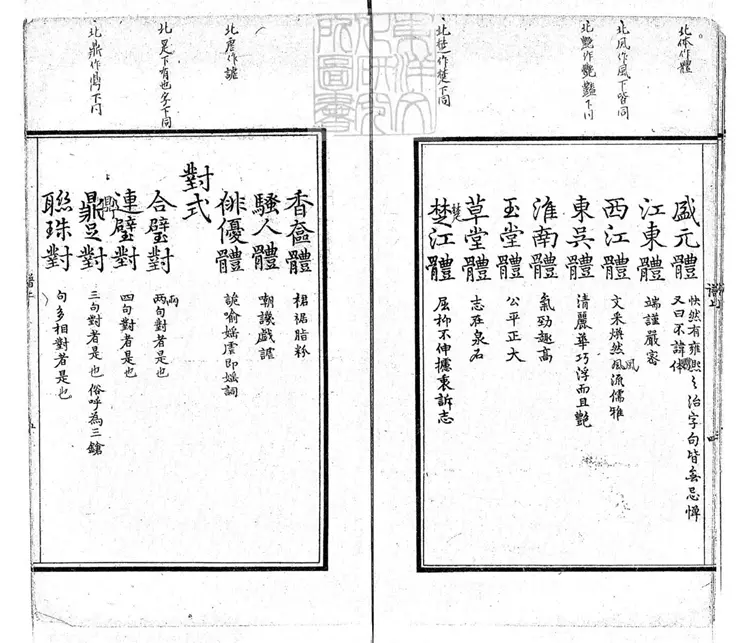 北体作體
北风作風下皆同
北艷作艶艷下同
北椘作楚下同
盛元體 快然有雍熙之治字句皆無忌憚
又曰不諱体
江東體 端謹嚴密
西江體 文采煥然風流儒雅
風
東吳體 清麗華巧浮而且艷
淮南體 氣勁趣高
玉堂體 公平正大
草堂體 志在泉石
楚
椘江體 屈抑不伸攄衷訴志
譜上
北虐作謔
北是下有也字下同
北鼎作鼎下同
香奩體 裙裾脂粉
騷人體 嘲譏戲謔
俳優體 詭喻媱虐即媱詞
對式
合璧對 兩句對者是也
兩
連璧對 四句對者是也
鼎
鼎足對 三句對者是也俗呼為三鎗
聯珠對 句多相對者是也
譜上